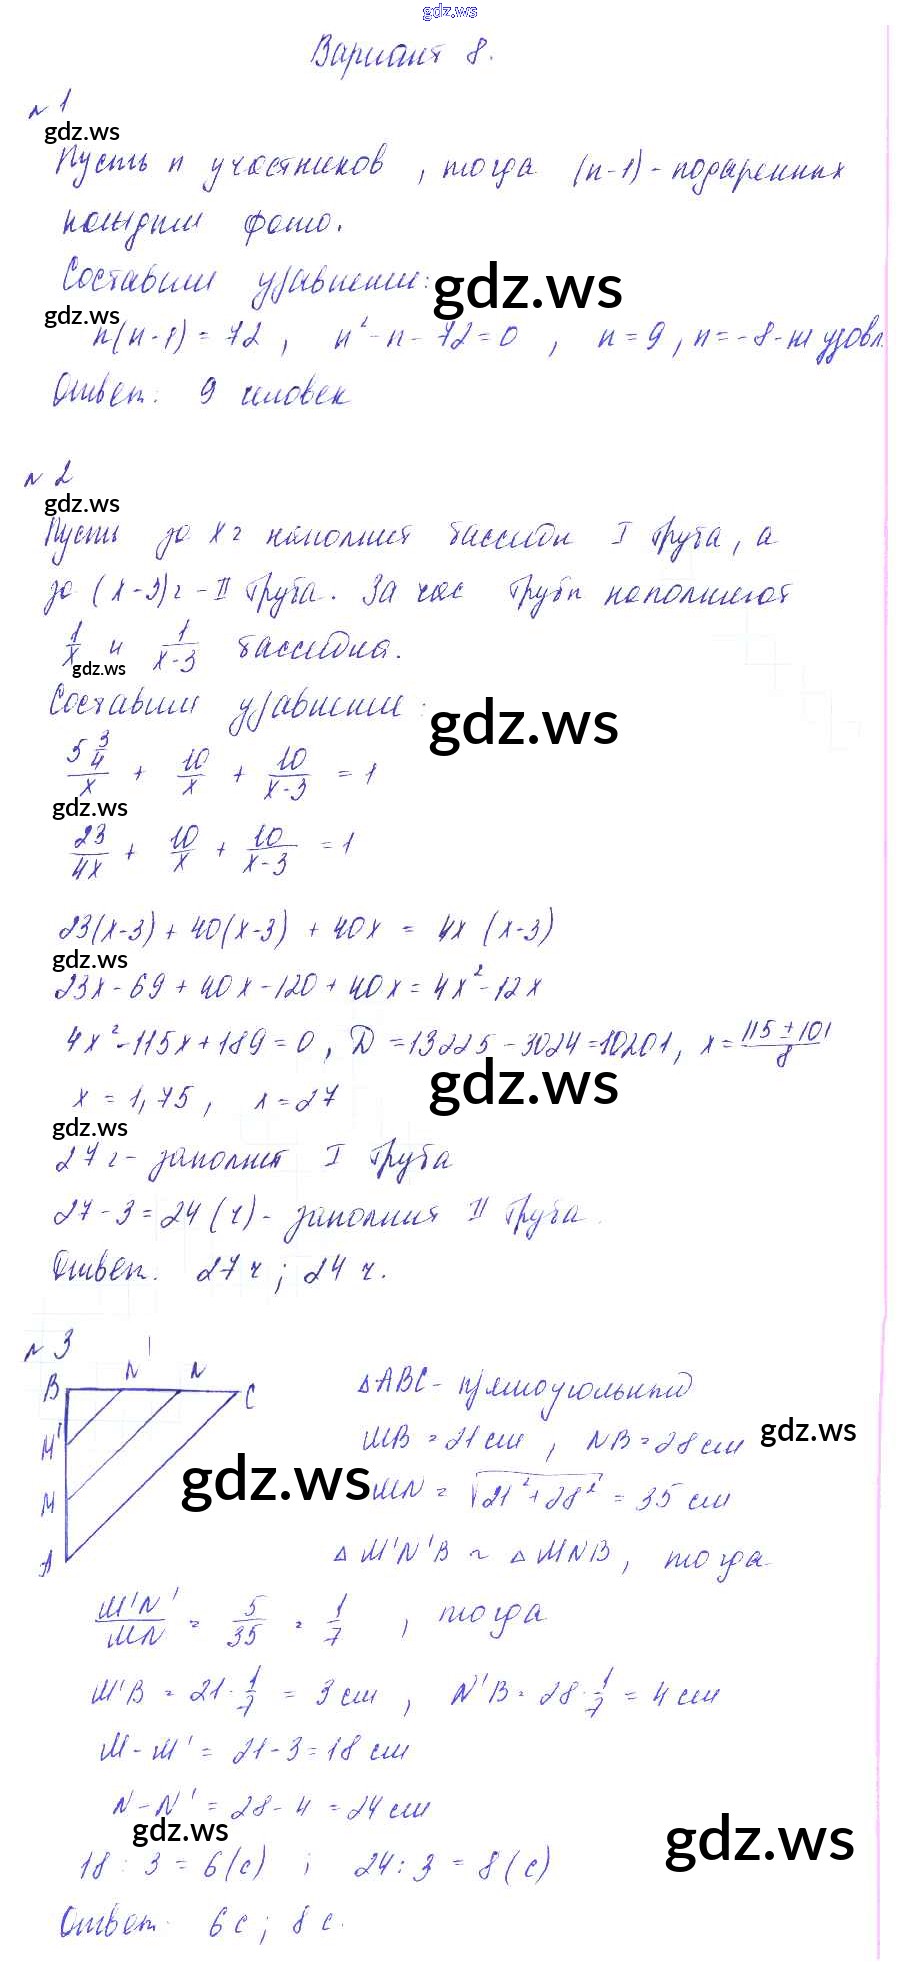 gdz.ws
Вариант 8.
№ 1
gdz.ws
Пусть n участников, тогда (n-1) - подаренных
каждым фото.
Составим уравнение:
gdz.ws
gdz.ws
n(n-1) = 72, n² - n - 72 = 0, n = 9, n = -8 - не удовл.
Ответ: 9 человек
№ 2
gdz.ws
Пусть за x ч наполнит бассейн I труба, а
за (x-3) ч - II труба. За час трубы наполняют
1/x и 1/(x-3) бассейна.
gdz.ws
Составим уравнение:
gdz.ws
5 3/4 / x + 10/x + 10/(x-3) = 1
gdz.ws
23/4x + 10/x + 10/(x-3) = 1
23(x-3) + 40(x-3) + 40x = 4x (x-3)
gdz.ws
23x - 69 + 40x - 120 + 40x = 4x² - 12x
4x² - 115x + 189 = 0, D = 13225 - 3024 = 10201, x = (115 ± 101)/8
gdz.ws
x = 1,75, x = 27
gdz.ws
27 ч - заполнит I труба
27 - 3 = 24 (ч) - заполнит II труба.
Ответ: 27 ч; 24 ч.
№ 3
B N' N C
M'
M
A
△ABC - прямоугольный
MB = 21 см, NB = 28 см
gdz.ws
gdz.ws
MN = √(21² + 28²) = 35 см
△ M'N'B ~ △ MNB, тогда
M'N'/MN = 5/35 = 1/7, тогда
M'B = 21 · 1/7 = 3 см, N'B = 28 · 1/7 = 4 см
M - M' = 21 - 3 = 18 см
N - N' = 28 - 4 = 24 см
gdz.ws
gdz.ws
18 : 3 = 6 (с); 24 : 3 = 8 (с)
Ответ: 6 с; 8 с.